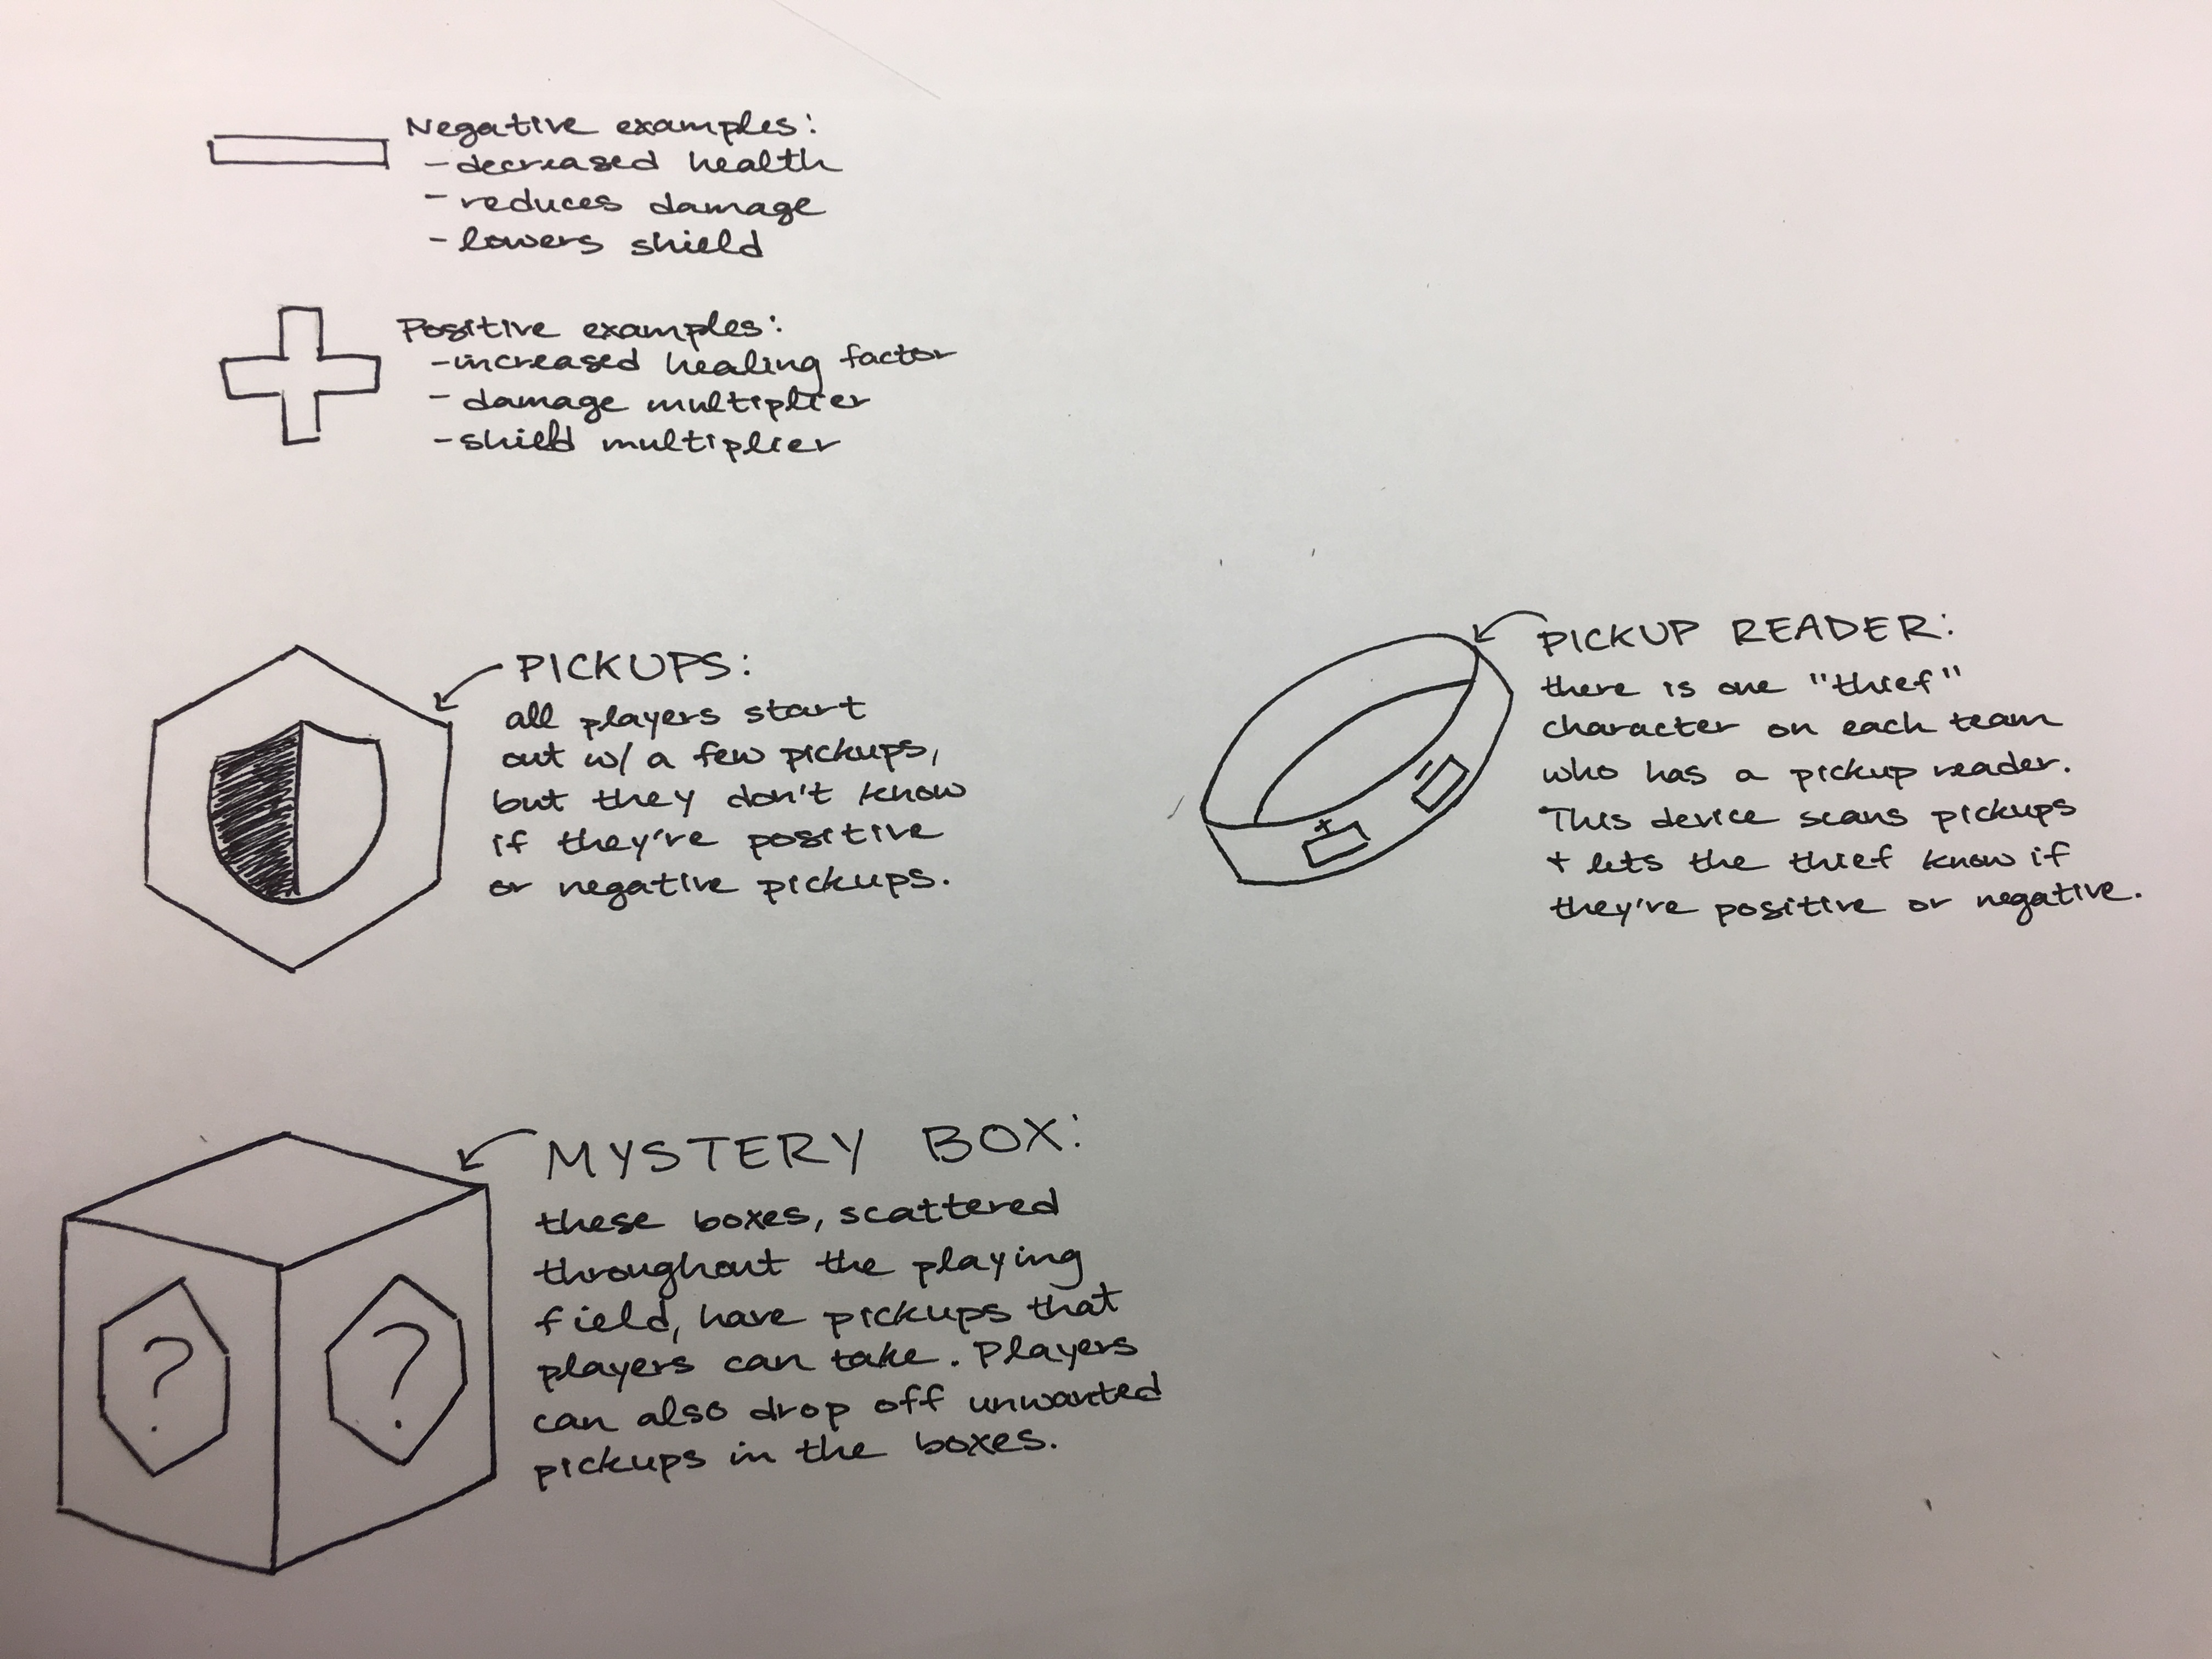 Negative examples:
- decreased health
- reduces damage
- lowers shield
Positive examples:
- increased healing factor
- damage multiplier
- shield multiplier
PICKUPS:
all players start
out w/ a few pickups,
but they don't know
if they're positive
or negative pickups.
PICKUP READER:
there is one "thief"
character on each team
who has a pickup reader.
This device scans pickups
+ lets the thief know if
they're positive or negative.
+
-
MYSTERY BOX:
these boxes, scattered
throughout the playing
field, have pickups that
players can take. Players
can also drop off unwanted
pickups in the boxes.
?
?